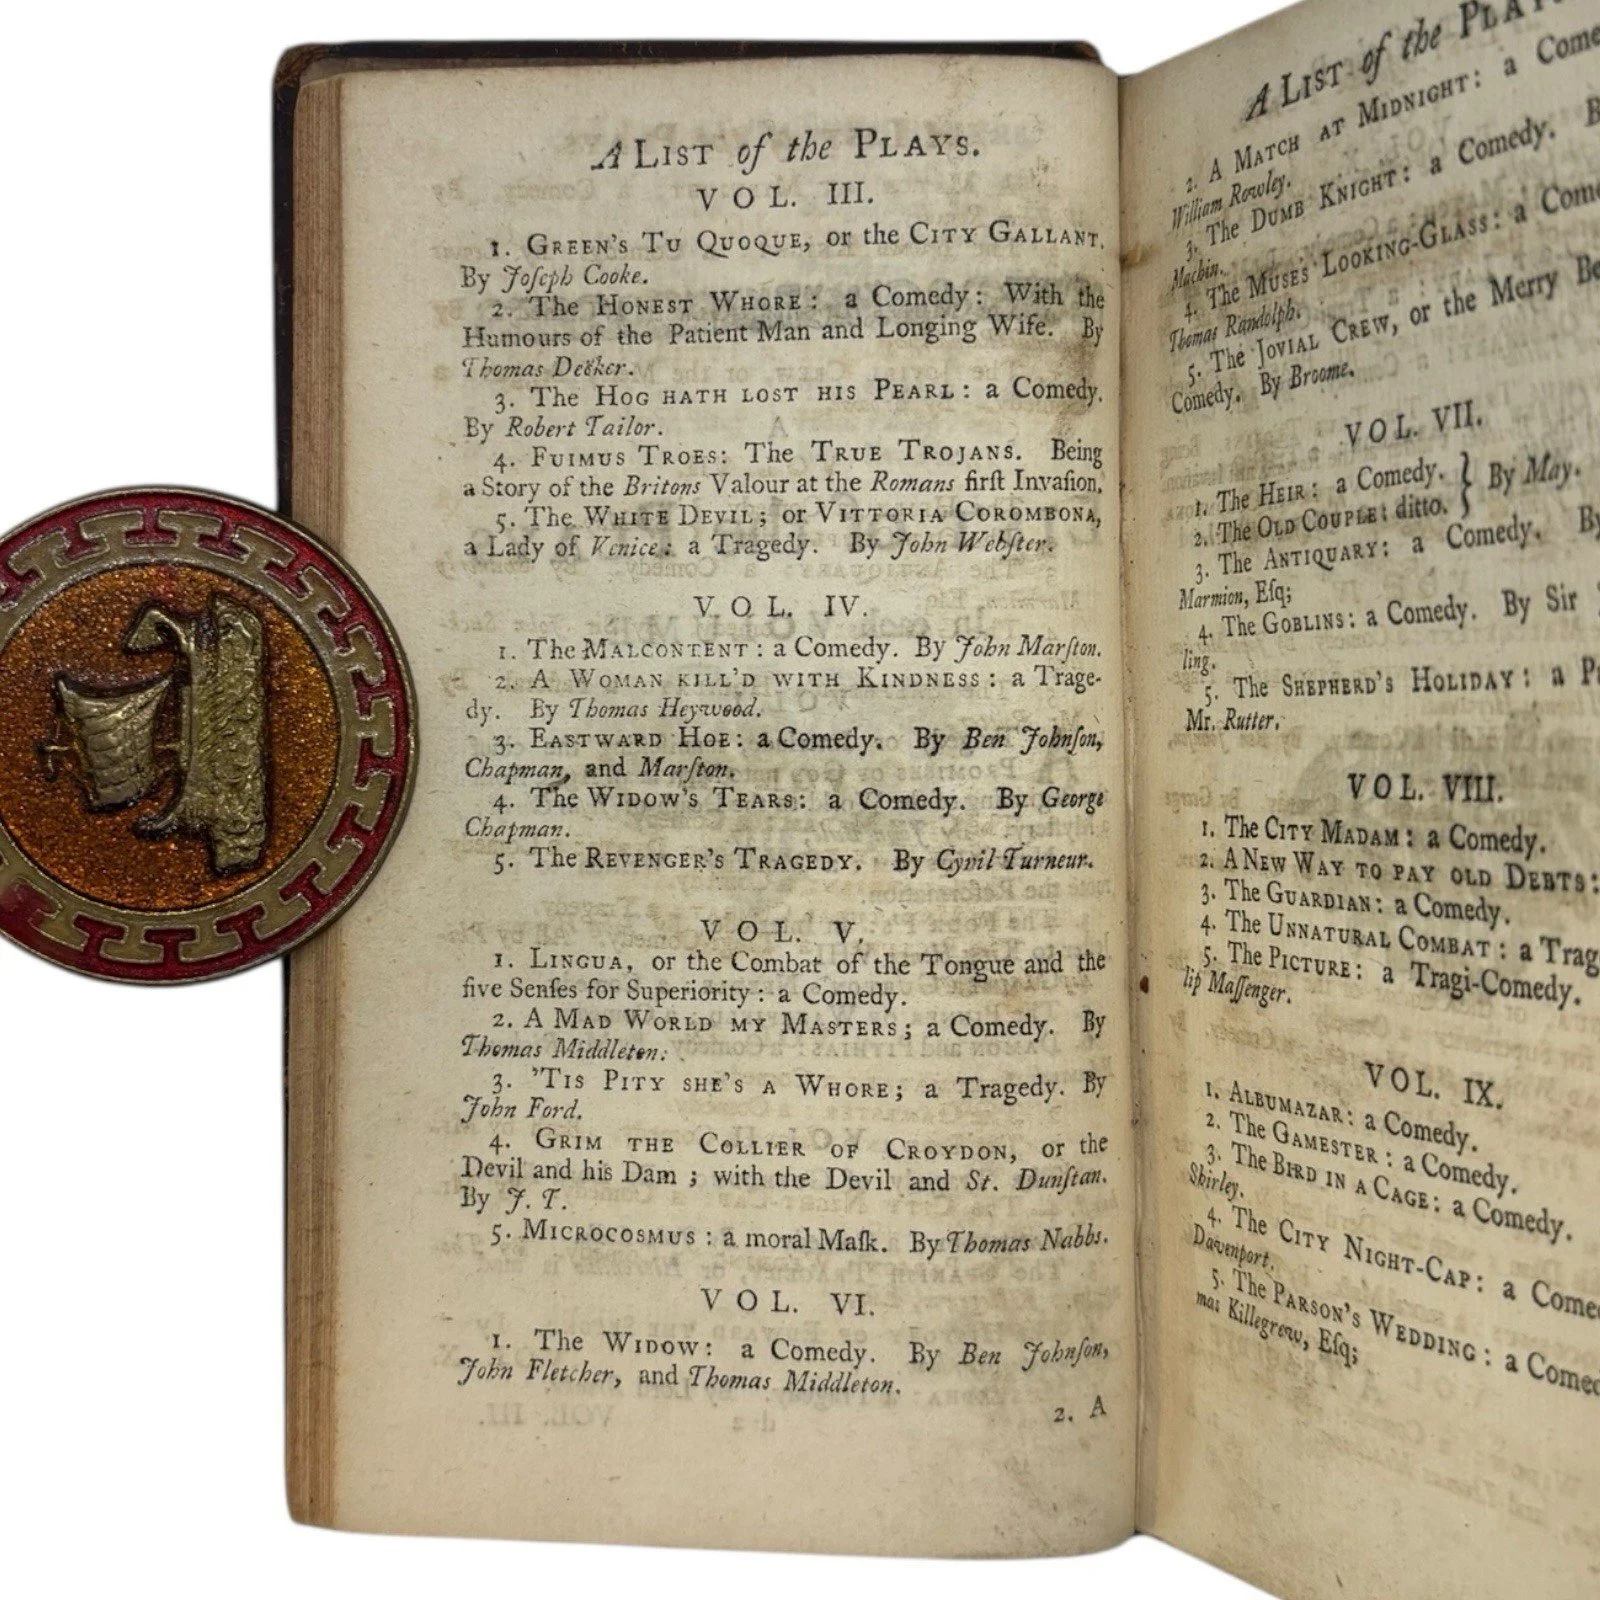 A LIST of the PLAYS.
VOL. III.
1. GREEN'S TU QUOQUE, or the CITY GALLANT.
By Joſeph Cooke.
2. The HONEST WHORE: a Comedy: With the
Humours of the Patient Man and Longing Wife. By
Thomas Decker.
3. The HOG HATH LOST HIS PEARL: a Comedy.
By Robert Tailor.
4. FUIMUS TROES: The TRUE TROJANS. Being
a Story of the Britons Valour at the Romans firſt Invaſion.
5. The WHITE DEVIL; or VITTORIA COROMBONA,
a Lady of Venice: a Tragedy. By John Webſter.
VOL. IV.
1. The MALCONTENT: a Comedy. By John Marſton.
2. A WOMAN KILL'D WITH KINDNESS: a Trage-
dy. By Thomas Heywood.
3. EASTWARD HOE: a Comedy. By Ben Johnſon,
Chapman, and Marſton.
4. The WIDOW'S TEARS: a Comedy. By George
Chapman.
5. The REVENGER'S TRAGEDY. By Cyril Turneur.
VOL. V.
1. LINGUA, or the Combat of the Tongue and the
five Senſes for Superiority: a Comedy.
2. A MAD WORLD MY MASTERS; a Comedy. By
Thomas Middleton.
3. 'TIS PITY SHE'S A WHORE; a Tragedy. By
John Ford.
4. GRIM THE COLLIER OF CROYDON, or the
Devil and his Dam; with the Devil and St. Dunſtan.
By J. T.
5. MICROCOSMUS: a moral Maſk. By Thomas Nabbs.
VOL. VI.
1. The WIDOW: a Comedy. By Ben Johnſon,
John Fletcher, and Thomas Middleton.
2. A
A LIST of the
2. A MATCH AT MIDNIGHT: a
William Rowley.
3. The DUMB KNIGHT: a Comedy.
Machin.
4. The MUSES LOOKING-GLASS: a
Thomas Randolph.
5. The JOVIAL CREW, or the Merry
Comedy. By Broome.
VOL. VII.
1. The HEIR: a Comedy. } By May.
2. The OLD COUPLE: ditto.
3. The ANTIQUARY: a Comedy. By
Marmion, Eſq;
4. The GOBLINS: a Comedy. By Sir
ling.
5. The SHEPHERD'S HOLIDAY: a
Mr. Rutter.
VOL. VIII.
1. The CITY MADAM: a Comedy.
2. A NEW WAY TO PAY OLD DEBTS:
3. The GUARDIAN: a Comedy.
4. The UNNATURAL COMBAT: a
5. The PICTURE: a Tragi-Comedy.
lip Maſſenger.
VOL. IX.
1. ALBUMAZAR: a Comedy.
2. The GAMESTER: a Comedy.
3. The BIRD IN A CAGE: a Comedy.
Shirley.
4. The CITY NIGHT-CAP: a
Davenport.
5. The PARSON'S WEDDING: a
mas Killegrew, Eſq;